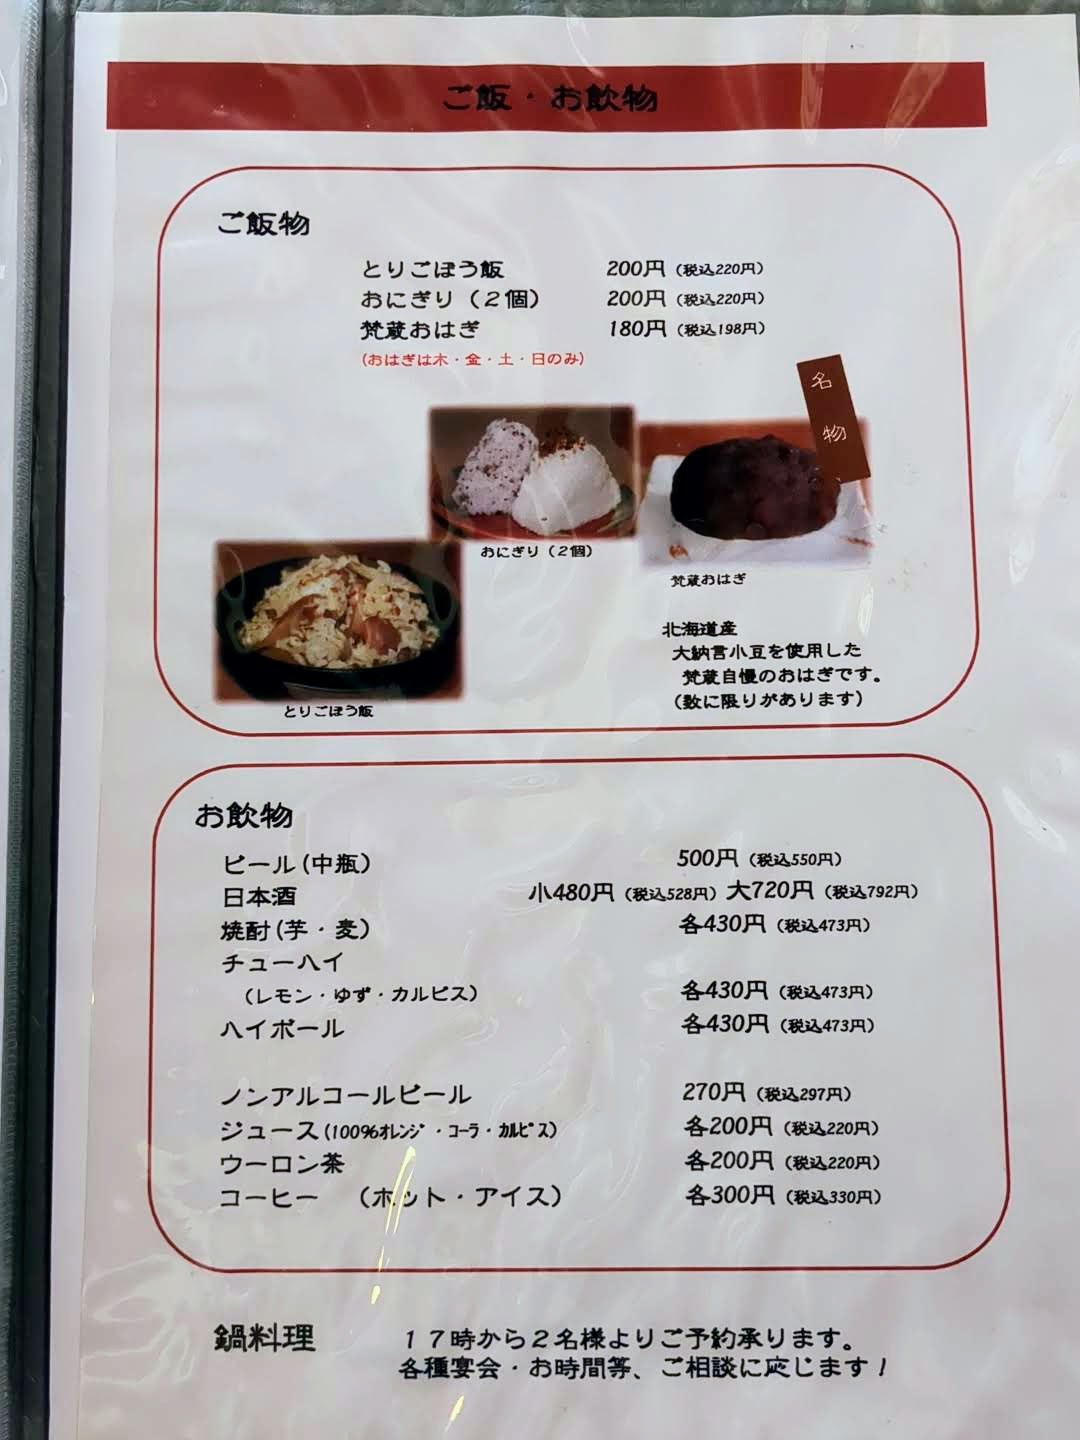 ご飯・お飲物
ご飯物
とりごぼう飯 200円（税込220円）
おにぎり（２個） 200円（税込220円）
梵蔵おはぎ 180円（税込198円）
（おはぎは木・金・土・日のみ）
名物
おにぎり（２個）
梵蔵おはぎ
とりごぼう飯
北海道産
大納言小豆を使用した
梵蔵自慢のおはぎです。
（数に限りがあります）
お飲物
ビール（中瓶） 500円（税込550円）
日本酒 小480円（税込528円） 大720円（税込792円）
焼酎（芋・麦） 各430円（税込473円）
チューハイ
（レモン・ゆず・カルピス） 各430円（税込473円）
ハイボール 各430円（税込473円）
ノンアルコールビール 270円（税込297円）
ジュース(100%ｵﾚﾝｼﾞ・ｺｰﾗ・ｶﾙﾋﾟｽ) 各200円（税込220円）
ウーロン茶 各200円（税込220円）
コーヒー （ホット・アイス） 各300円（税込330円）
鍋料理 １７時から２名様よりご予約承ります。
各種宴会・お時間等、ご相談に応じます！